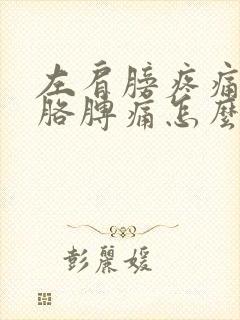 左肩膀疼痛
胳脾痛怎麼
彭麗媛